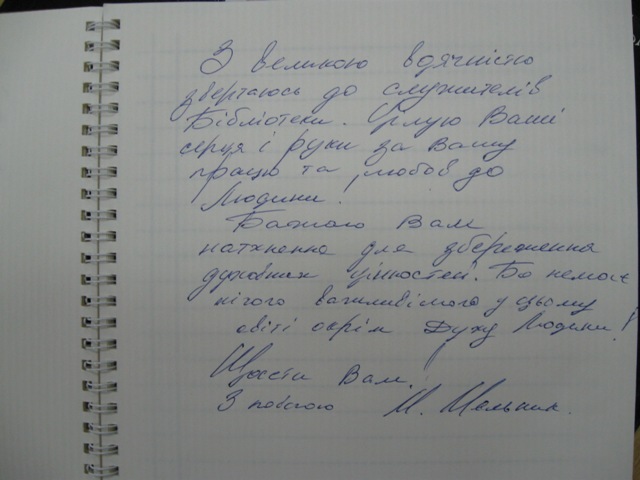 З великою вдячністю
звертаюсь до служителів
Бібліотеки. Цілую Ваші
серця і руки за Вашу
працю та любов до
Людини!
Бажаю Вам
натхнення для збереження
духовних цінностей. Бо немає
нічого важливішого у цьому
світі окрім Духу Людини!
Щастя Вам!
З повагою М. Мельник.